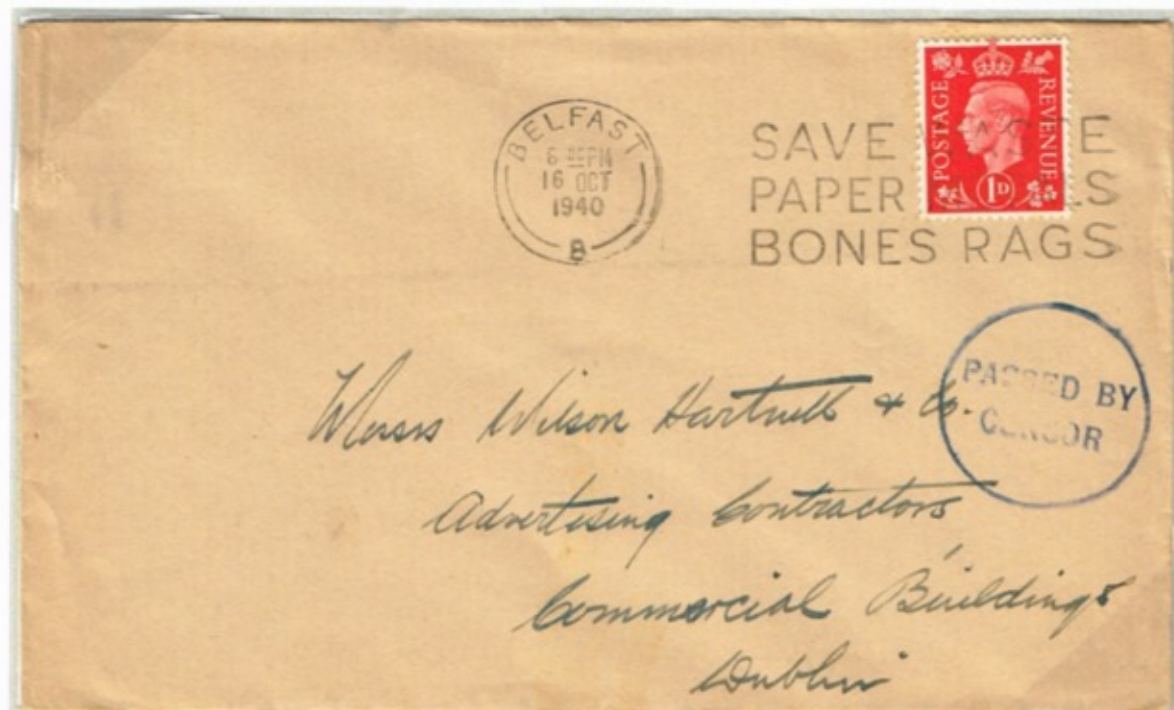 BELFAST
PM
16 OCT
1940
B
SAVE
PAPER
BONES RAGS
POSTAGE
REVENUE
1D
PASSED BY
CENSOR
Messrs Wilson Hartnell & Co.
Advertising Contractors
Commercial Buildings
Dublin